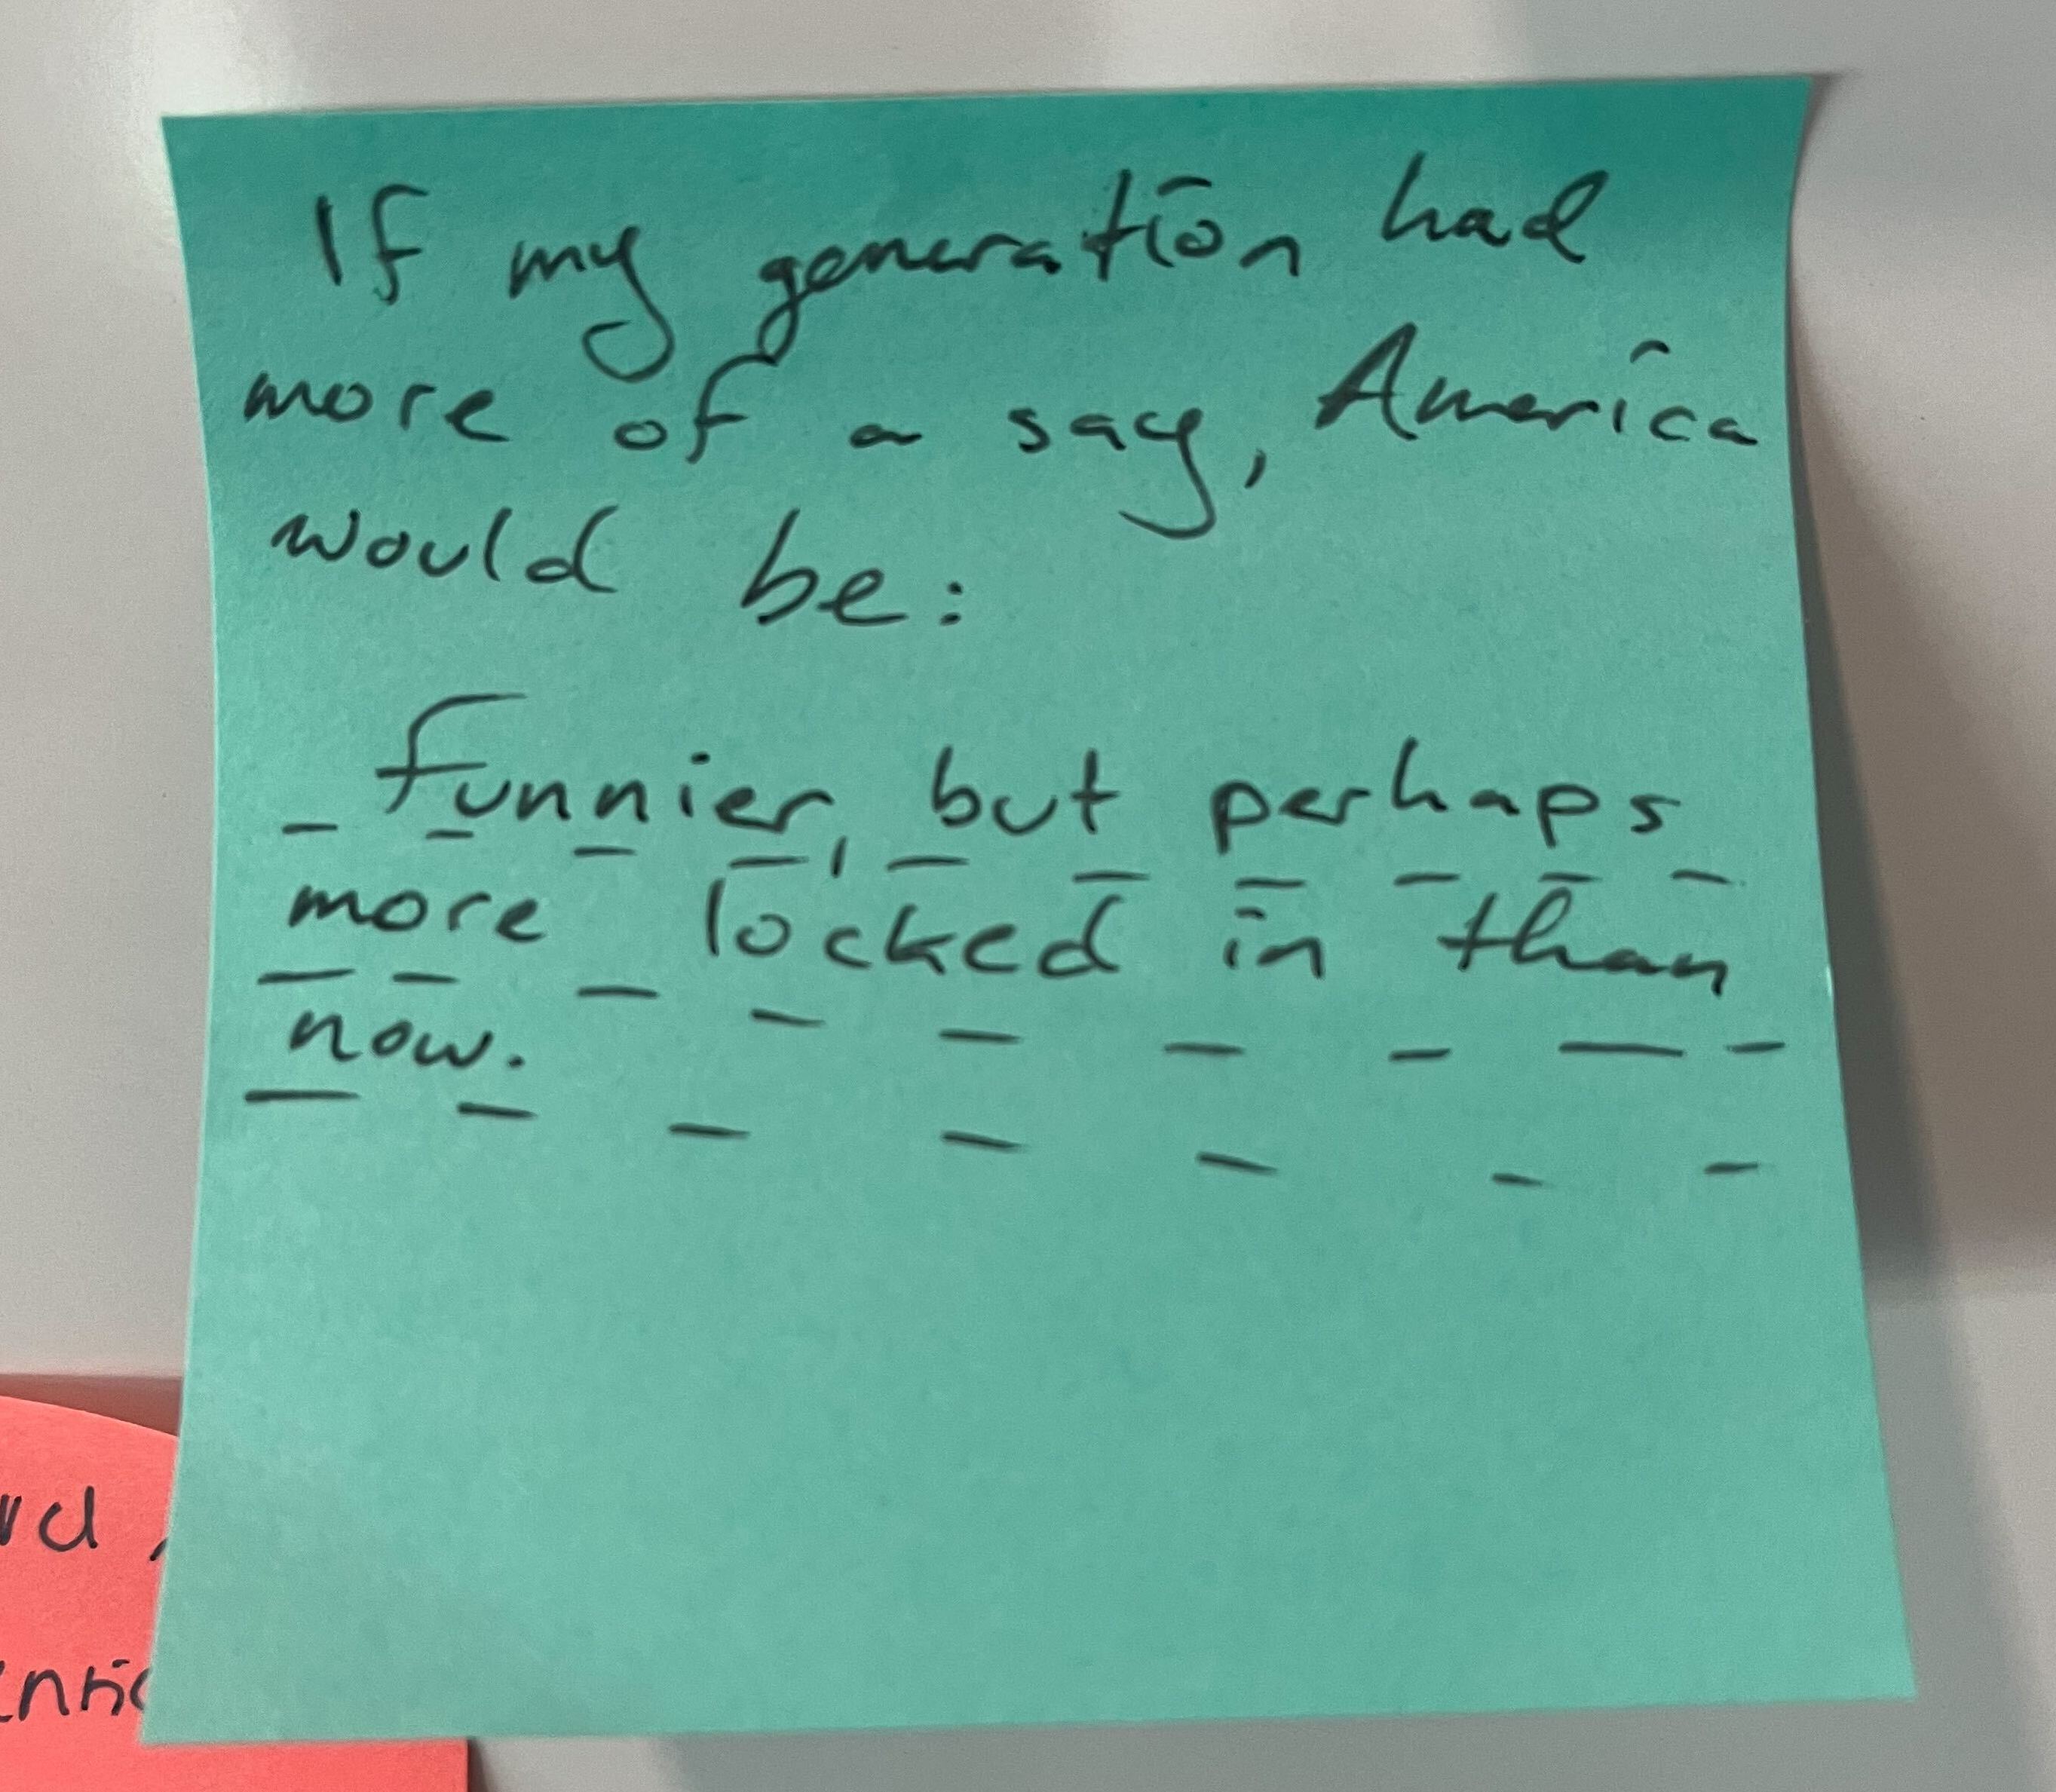 If my generation had
more of a say, America
would be:
funnier, but perhaps
more locked in than
now.